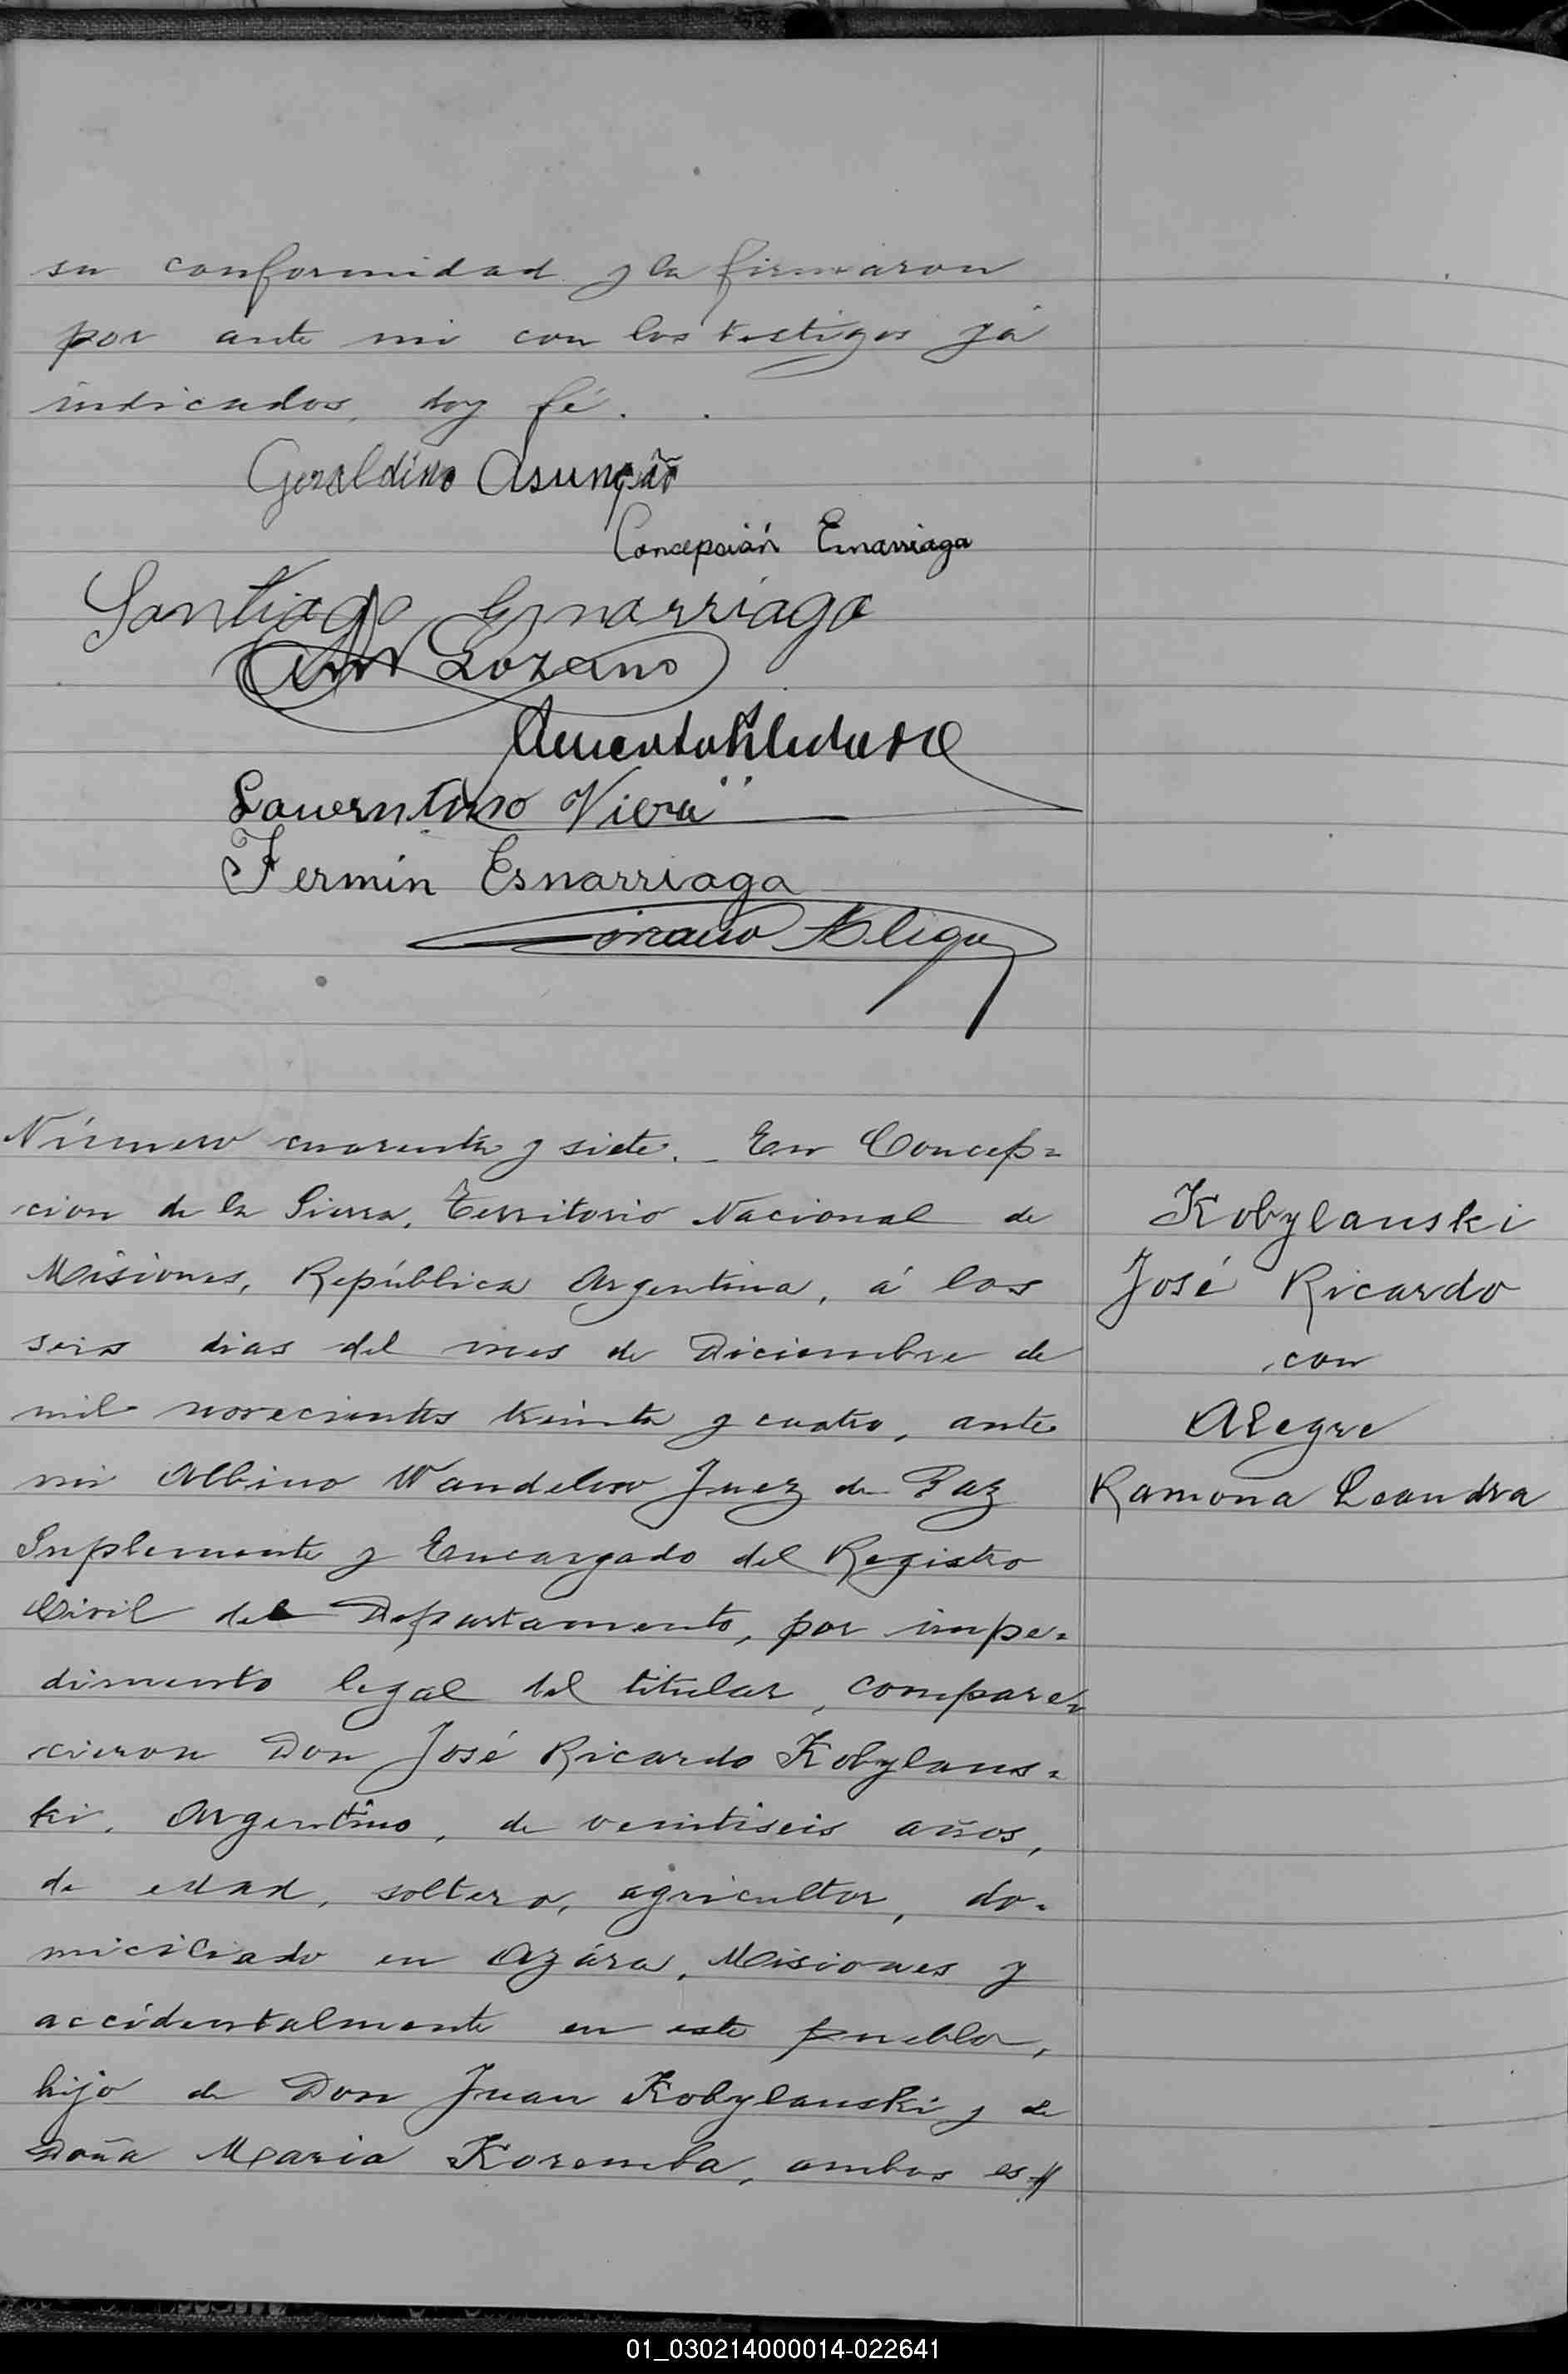 su conformidad y la firmaron
por ante mi con los testigos yá
indicados, doy fé.
Geraldino Asunção
Concepción Esnarriaga
Santiago Esnarriaga
Lozano
Laurentino Viera
Fermín Esnarriaga
Número cuarenta y siete. _ En Concep=
cion de la Sierra, Territorio Nacional de
Misiones, República Argentina, á los
seis dias del mes de Diciembre de
mil novecientos treinta y cuatro, ante
mi Albino Wandelow Juez de Paz
Suplemente y Encargado del Registro
Civil del Departamento, por impe=
dimento legal del titular, compare=
cieron Don José Ricardo Kobylans=
ki, Argentino, de veintiseis años,
de edad, soltero, agricultor, do=
miciliado en Azára, Misiones y
accidentalmente en este pueblo,
hijo de Don Juan Kobylanski y de
Doña Maria Koremba, ambos es//
Kobylanski
José Ricardo
con
Alegre
Ramona Leandra
01_030214000014-022641